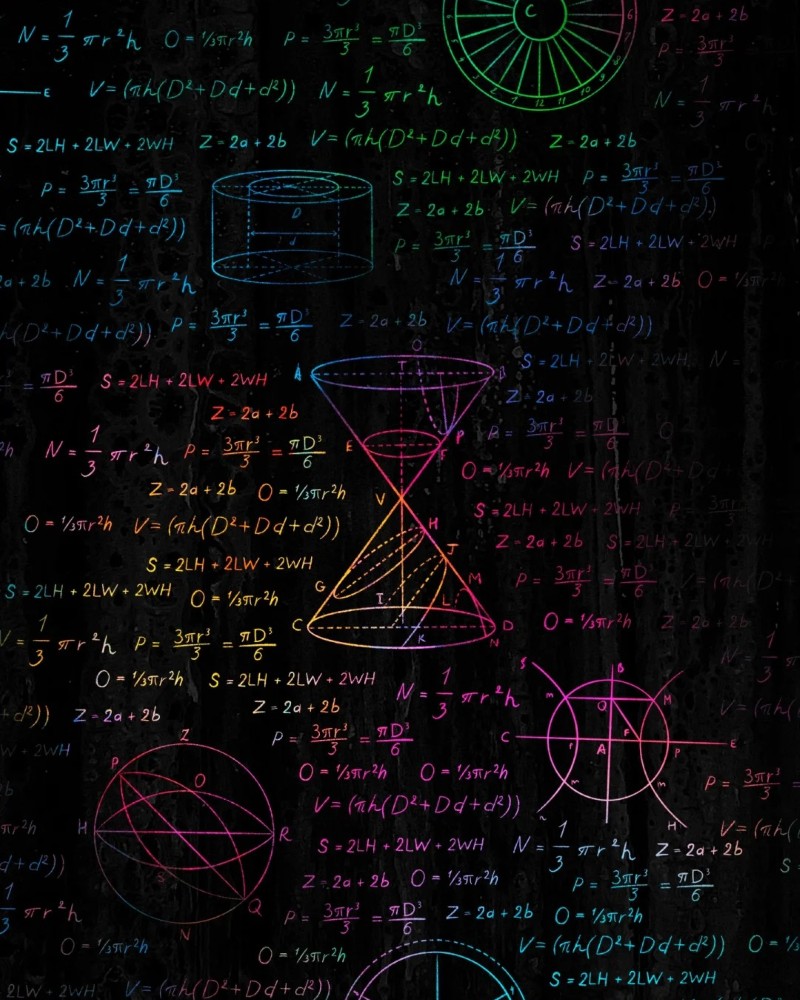 N = 1/3 πr²h O = ⅓πr²h P = 3πr³/3 = πD³/6 Z = 2a + 2b
P = 3πr³/3
E V = (πh(D² + Dd + d²)) N = 1/3 πr²h N = 1/3 πr²h
S = 2LH + 2LW + 2WH Z = 2a + 2b V = (πh(D² + Dd + d²)) Z = 2a + 2b
P = 3πr³/3 = πD³/6 S = 2LH + 2LW + 2WH P = 3πr³/3 = πD³/6
Z = 2a + 2b V = (πh(D² + Dd + d²))
= (πh(D² + Dd + d²)) D P = 3πr³/3 = πD³/6 S = 2LH + 2LW + 2WH
d
2a + 2b N = 1/3 πr²h N = 1/3 πr²h Z = 2a + 2b O = ⅓π
h(D² + Dd + d²)) P = 3πr³/3 = πD³/6 Z = 2a + 2b V = (πh(D² + Dd + d²))
O
A T B S = 2LH + 2LW + 2WH N =
= πD³/6 S = 2LH + 2LW + 2WH Z = 2a + 2b
Z = 2a + 2b
N = 1/3 πr²h P = 3πr³/3 = πD³/6 E F P P = 3πr³/3 = πD³/6 O
O = ⅓πr²h V = (πh(D² + Dd + d
Z = 2a + 2b O = ⅓πr²h V
S = 2LH + 2LW + 2WH P = 3πr³/3
O = ⅓πr²h V = (πh(D² + Dd + d²)) H Z = 2a + 2b S = 2LH + 2LW + 2WH
J
S = 2LH + 2LW + 2WH M P = 3πr³/3 = πD³/6 V = (πh(D² + D
S = 2LH + 2LW + 2WH O = ⅓πr²h G I L
V = 1/3 πr²h P = 3πr³/3 = πD³/6 C K D N O = ⅓πr²h Z = 2a + 2b
N = 1/3 π
O = ⅓πr²h S = 2LH + 2LW + 2WH N = 1/3 πr²h S B
+ d²)) Z = 2a + 2b Z = 2a + 2b m Q M V = (πh(
WH Z P = 3πr³/3 = πD³/6 C r A F P E
P O O = ⅓πr²h O = ⅓πr²h m m P = 3πr³/3 =
πr²h H R V = (πh(D² + Dd + d²)) H V = (πh(
d + d²)) S S = 2LH + 2LW + 2WH N = 1/3 πr²h Z = 2a + 2b S
Z = 2a + 2b O = ⅓πr²h P = 3πr³/3 = πD³/6
1/3 πr²h Q P = 3πr³/3 = πD³/6 Z = 2a + 2b O = ⅓πr²h
O = ⅓πr²h N O = ⅓πr²h V = (πh(D² + Dd + d²)) O = ⅓
2LW + 2WH V = (πh(D² + Dd + d²)) S = 2LH + 2LW + 2WH